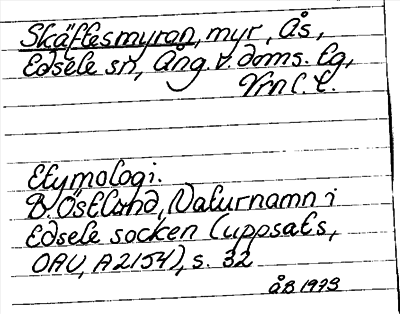 Skäftesmyran, myr, Ås,
Edsele sn, Ång. v. doms. lg,
Vrn l. t.
Etymologi.
B. Östlund, Naturnamn i
Edsele socken (uppsats,
OAU, A2154), s. 32
åB 1973